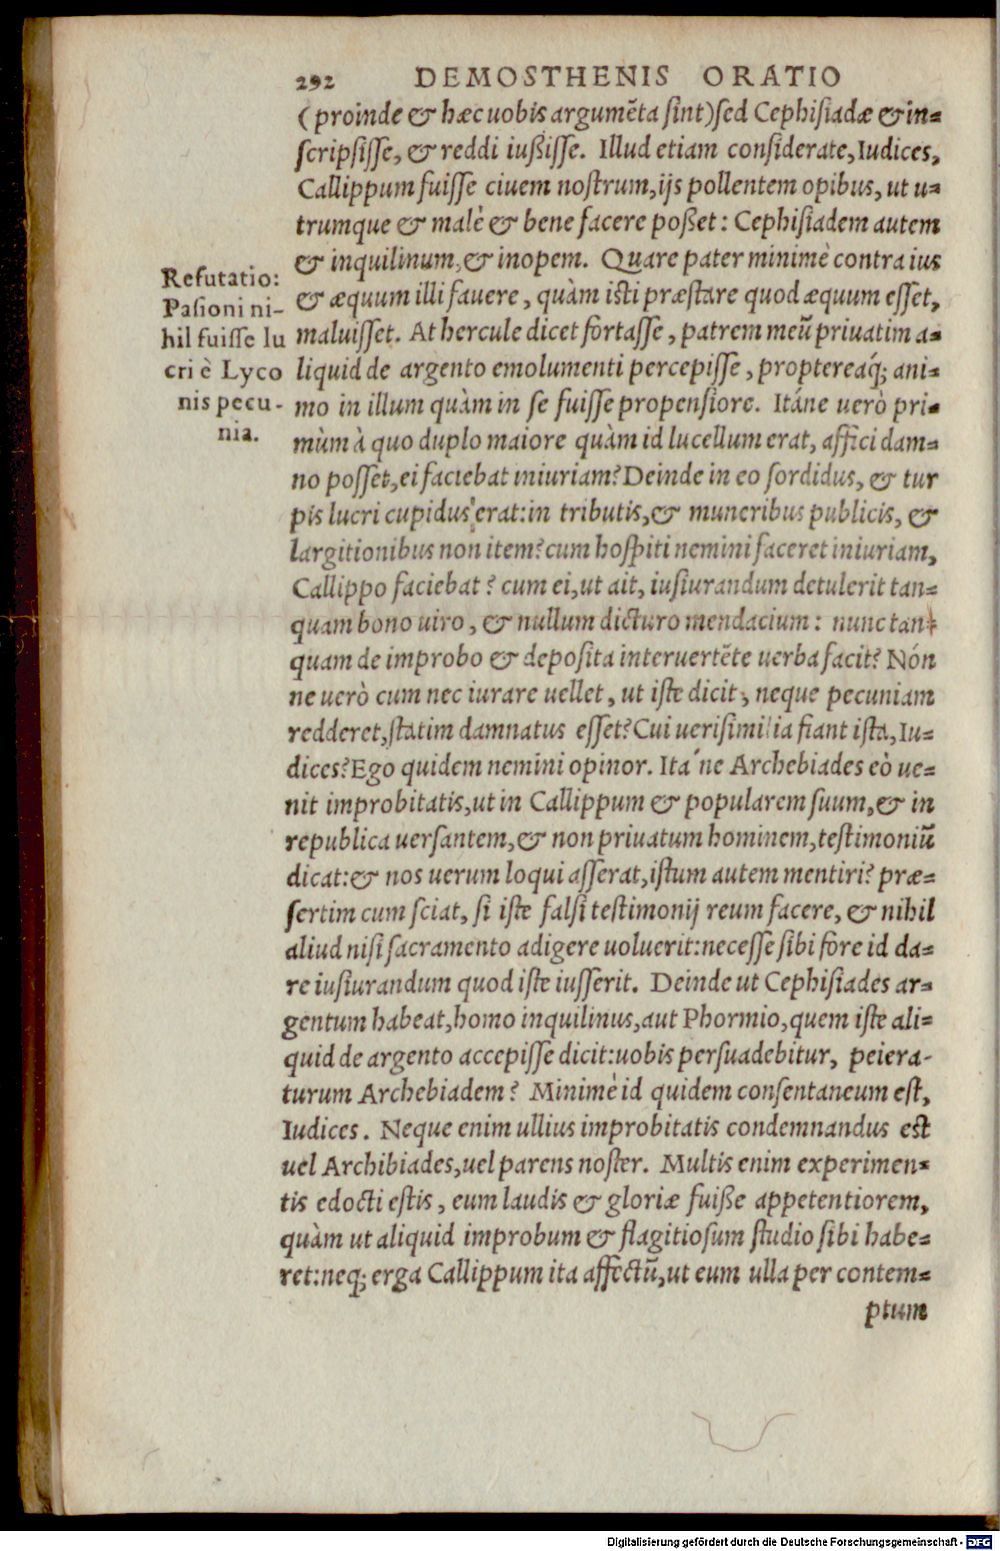 292 DEMOSTHENIS ORATIO
(proinde & hæc uobis argumẽta sint) sed Cephisiadæ & in=
scripsisse, & reddi iußisse. Illud etiam considerate, Iudices,
Callippum fuisse ciuem nostrum, ijs pollentem opibus, ut u=
trumque & malè & bene facere poßet: Cephisiadem autem
& inquilinum, & inopem. Quare pater minimè contra ius
& æquum illi fauere, quàm isti præstare quod æquum esset,
maluisset. At hercule dicet fortasse, patrem meũ priuatim a=
liquid de argento emolumenti percepisse, proptereaq́; ani=
mo in illum quàm in se fuisse propensiore. Itáne uerò pri=
mùm à quo duplo maiore quàm id lucellum erat, affici dam=
no posset, ei faciebat iniuriam? Deinde in eo sordidus, & tur
pis lucri cupidus erat: in tributis, & muneribus publicis, &
largitionibus non item? cum hospiti nemini faceret iniuriam,
Callippo faciebat? cum ei, ut ait, iusiurandum detulerit tan=
quam bono uiro, & nullum dicturo mendacium: nunc tan=
quam de improbo & deposita interuertẽte uerba facit? Nón
ne uerò cum nec iurare uellet, ut iste dicit, neque pecuniam
redderet, statim damnatus esset? Cui uerisimilia fiant ista, Iu=
dices? Ego quidem nemini opinor. Itá ne Archebiades eò ue=
nit improbitatis, ut in Callippum & popularem suum, & in
republica uersantem, & non priuatum hominem, testimoniũ
dicat: & nos uerum loqui asserat, istum autem mentiri? præ=
sertim cum sciat, si iste falsi testimonij reum facere, & nihil
aliud nisi sacramento adigere uoluerit: necesse sibi fore id da=
re iusiurandum quod iste iusserit. Deinde ut Cephisiades ar=
gentum habeat, homo inquilinus, aut Phormio, quem iste ali=
quid de argento accepisse dicit: uobis persuadebitur, peiera-
turum Archebiadem? Minimè id quidem consentaneum est,
Iudices. Neque enim ullius improbitatis condemnandus est
uel Archibiades, uel parens noster. Multis enim experimen=
tis edocti estis, eum laudis & gloriæ fuiße appetentiorem,
quàm ut aliquid improbum & flagitiosum studio sibi habe=
ret: neq; erga Callippum ita affectũ, ut eum ulla per contem=
ptum
Refutatio:
Pasioni ni-
hil fuisse lu
cri è Lyco
nis pecu-
nia.
Digitalisierung gefördert durch die Deutsche Forschungsgemeinschaft - DFG